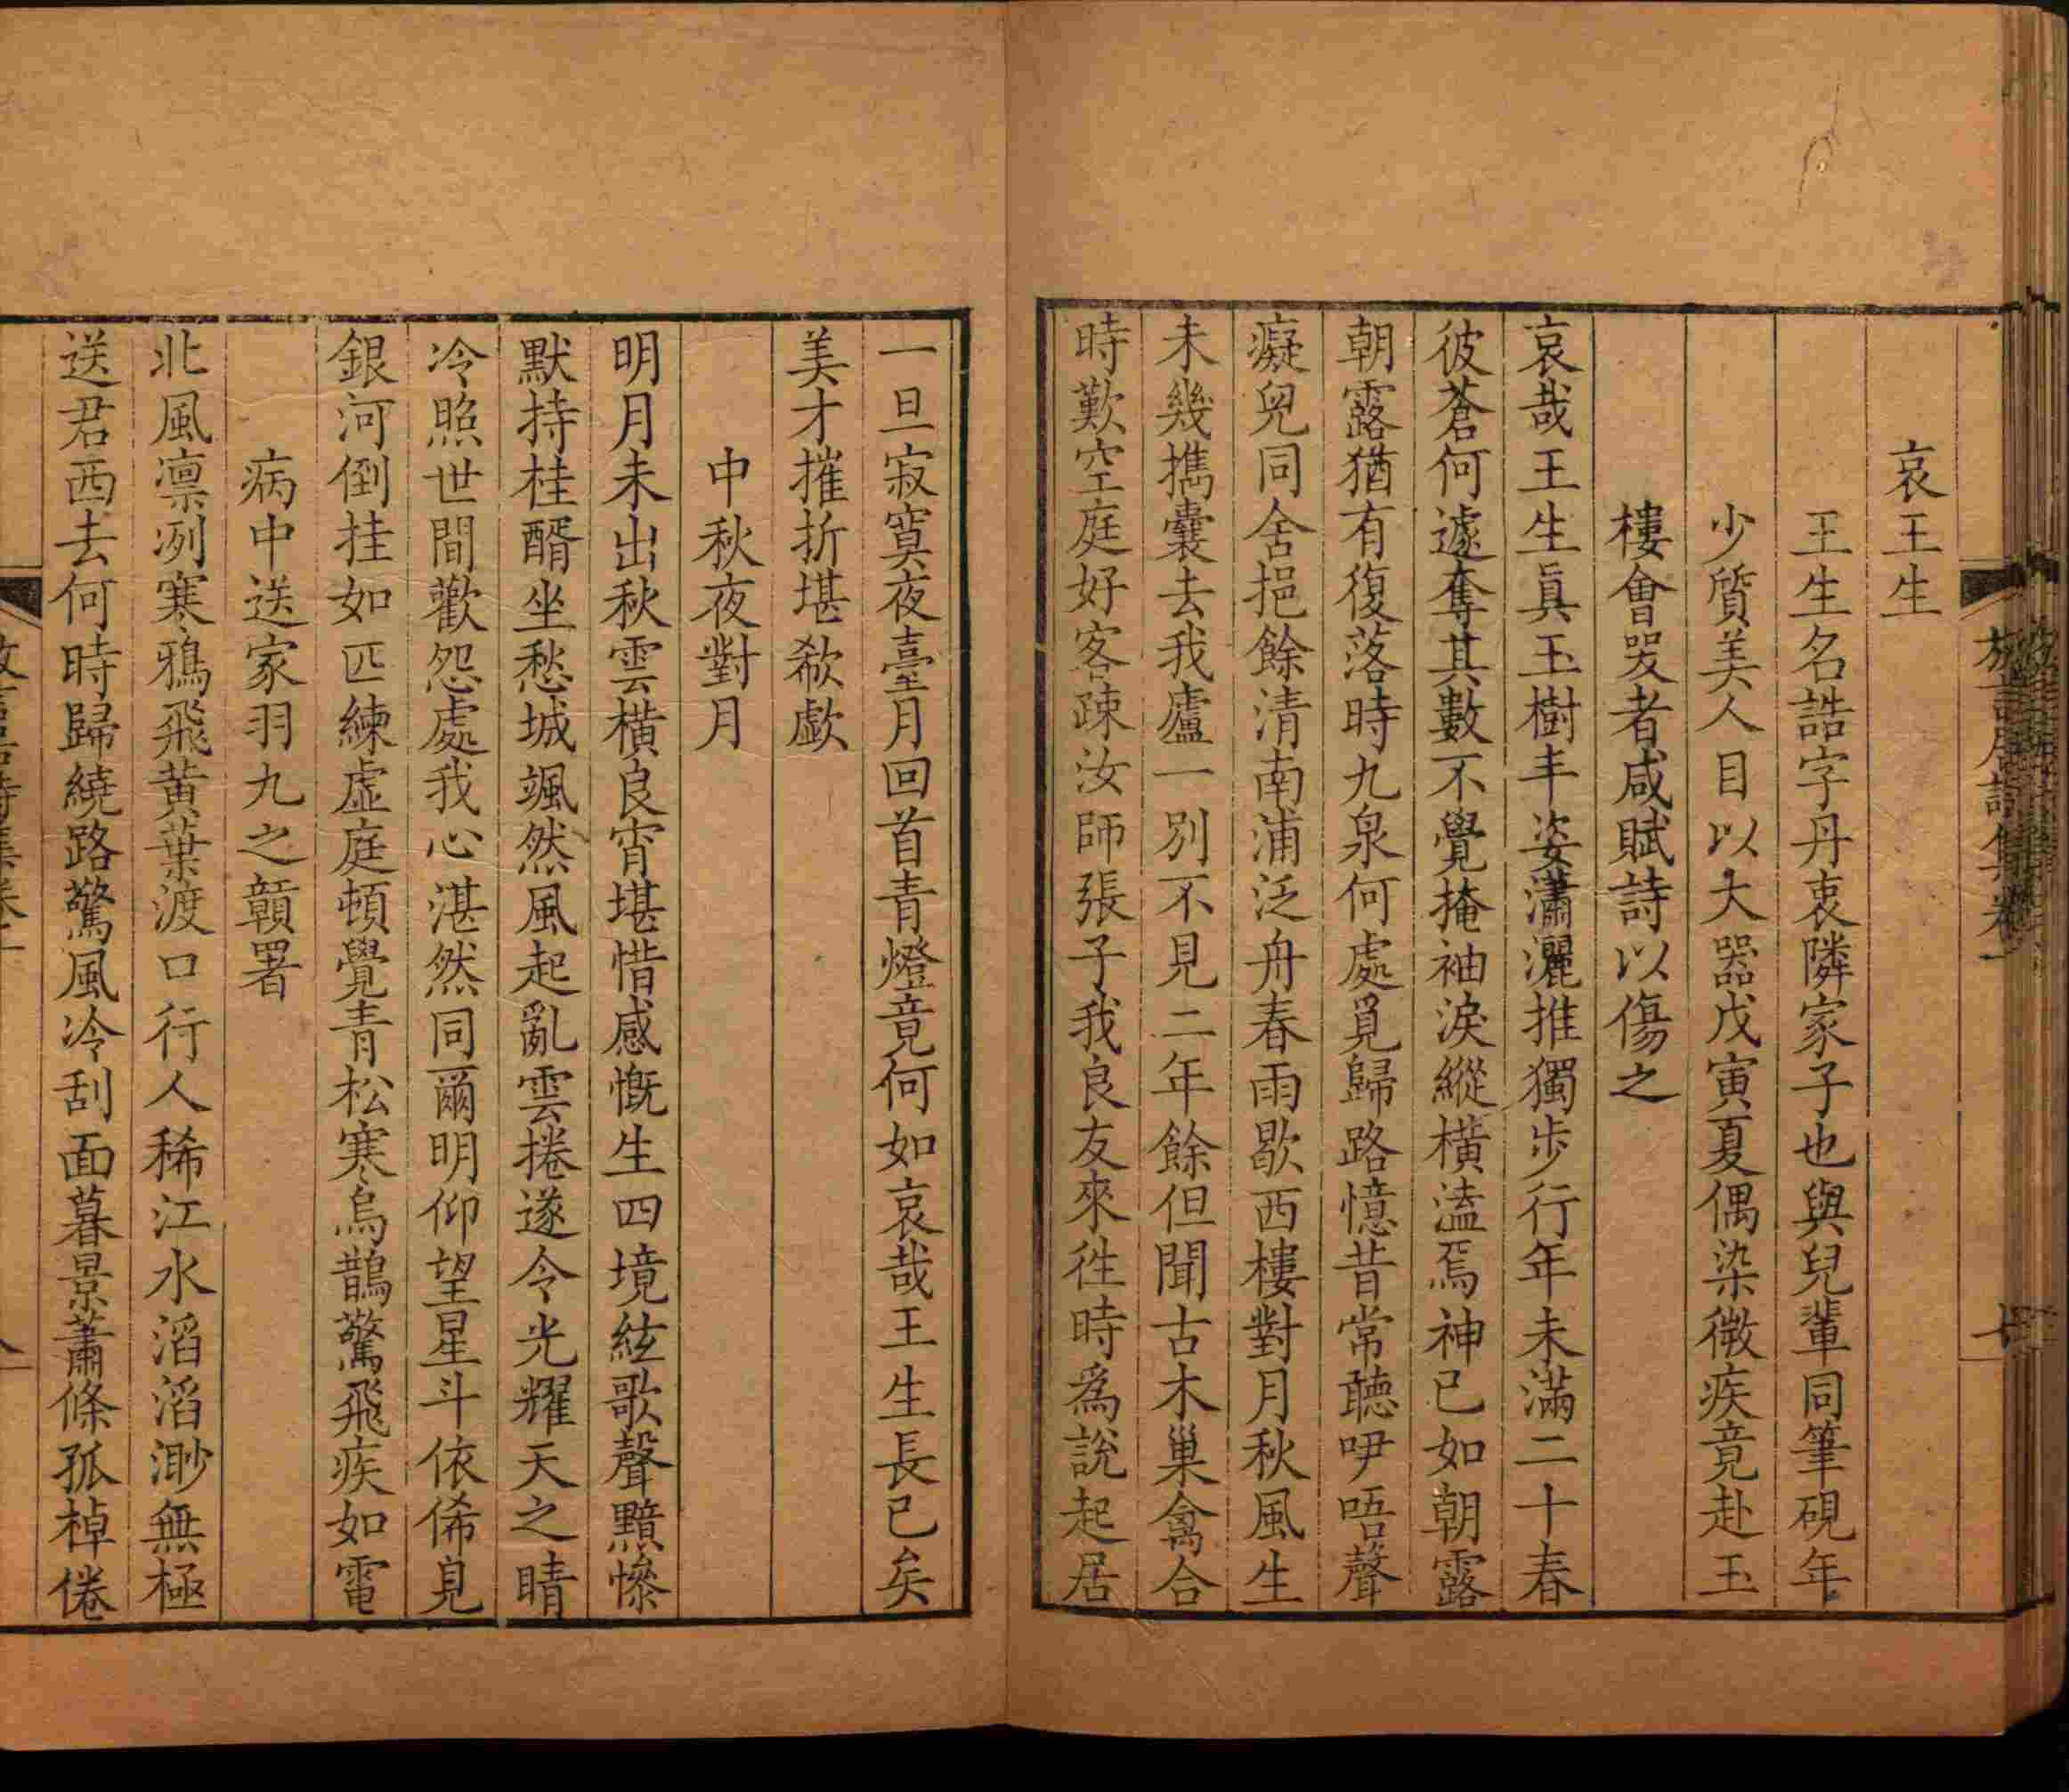 哀王生
王生名誥字丹衷隣家子也與兒輩同筆硯年
少質美人目以大器戊寅夏偶染微疾竟赴玉
樓會哭者咸賦詩以傷之
哀哉王生眞玉樹丰姿瀟灑推獨步行年未滿二十春
彼蒼何遽奪其數不覺掩袖淚縱橫溘焉神已如朝露
朝露猶有復落時九泉何處覓歸路憶昔常聽咿唔聲
癡兒同舍挹餘清南浦泛舟春雨歇西樓對月秋風生
未幾擕囊去我廬一別不見二年餘但聞古木巢禽合
時歎空庭好客疎汝師張子我良友來徃時爲說起居
一旦寂寞夜臺月回首青燈竟何如哀哉王生長已矣
美才摧折堪欷歔
中秋夜對月
明月未出秋雲橫良宵堪惜感慨生四境絃歌聲黯慘
默持桂醑坐愁城颯然風起亂雲捲遂令光耀天之晴
冷照世間歡怨處我心湛然同爾明仰望星斗依俙見
銀河倒挂如匹練虛庭頓覺青松寒烏鵲驚飛疾如電
病中送家羽九之贛署
北風凛冽寒鴉飛黄葉渡口行人稀江水滔滔渺無極
送君西去何時歸繞路驚風冷刮面暮景蕭條孤棹倦